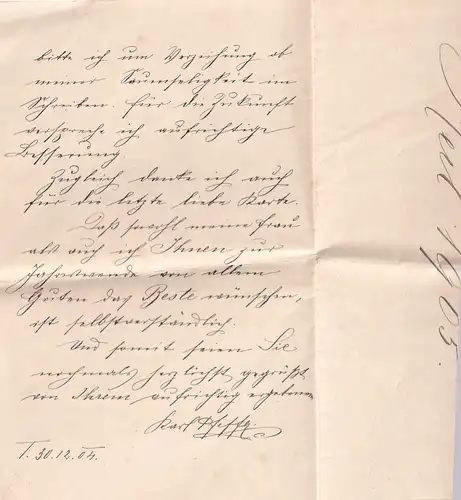 bitte ich um Verzeihung ob
meiner Saumseligkeit im
Schreiben. Für die Zukunft
verspreche ich aufrichtige
Besserung.
Zugleich danke ich auch
für die letzte liebe Karte.
Daß sowohl meine Frau
als auch ich Ihnen zur
Jahreswende von allem
Guten das Beste wünschen,
ist selbstverständlich.
Und somit seien Sie
nochmals herzlichst gegrüßt
von Ihrem aufrichtig ergebenen
Karl
T. 30.12.04.
1905.